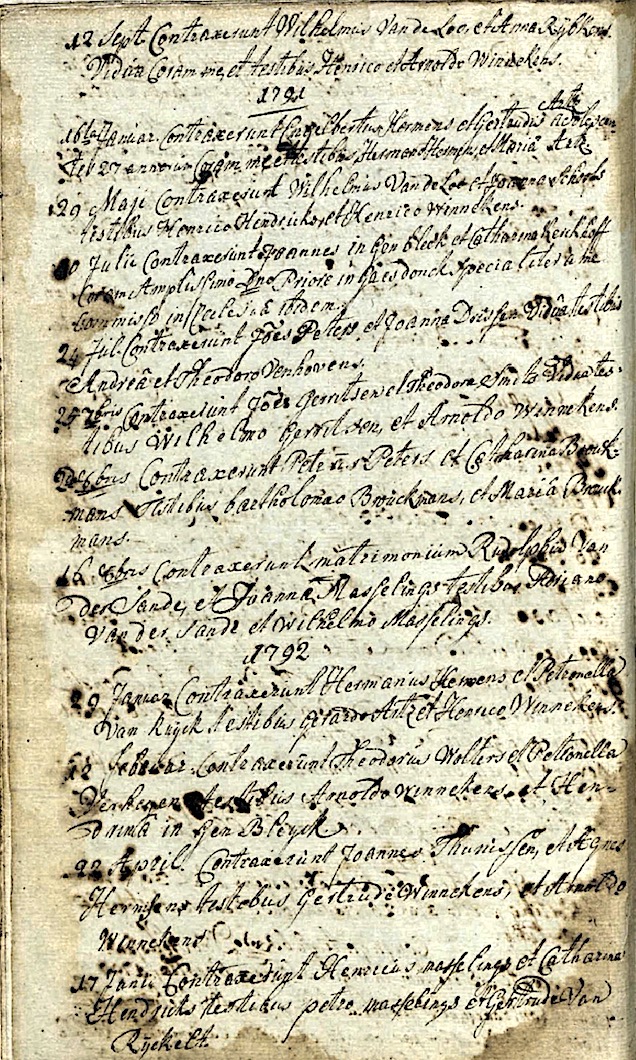 12 Sept Contraxerunt Wilhelmus Van de Loo, et Anna Rijbkens
Viduæ Coram me, et testibus Henrico et Arnoldo Winnekens.
1791
Artz
16ta Januar. Contraxerunt Engelbertus Hermens et Gertrudis adolescen-
27 annorum Coram me et testibus Hermano et Maria Artz
29 Maji Contraxerunt Wilhelmus Van de Loo et Joanna
testibus Henrico Hendricks, et Henrico Winnekens.
10 Julii Contraxerunt Joannes in Gen bleck et Catharina Kerckhoff
Coram Amplissimo Dno Priore in Gaesdonck specialiter a me
Commisso in Ecclesiâ ibidem.
24 Jul. Contraxerunt Jões Peters, et Joanna Drissen Vidua testibus
Andreâ et Theodoro Venhovens.
25 7bris Contraxerunt Jões Gerritsen et Theodora Smits Vidua tes-
tibus Wilhelmo Gerritsen, et Arnoldo Winnekens.
8bris Contraxerunt Petrus Peters et Catharina Brouk-
mans Testibus bartholomæo Brouckmans, et Mariâ Brouk
mans.
16 8bris Contraxerunt matrimonium Rudolphus Van
der Sande, et Joanna Masselings testibus Adriano
Van der Sande et Wilhelmo Masselings.
1792
29 Januar Contraxerunt Hermanus Hermens et Petronella
Van Ruyck testibus Gerardo Artz et Henrico Winnekens.
12 februar. Contraxerunt Theodorus Wolters et Petronella
Verheyen testibus Arnoldo Winnekens, et Hen-
drina in Gen Bleyck
22 April. Contraxerunt Joannes Thunissen, et Agnes
Hermsens testibus Gertrude Winnekens, et Arnoldo
Winnekens
17 Junii Contraxerunt Henricus masselings et Catharina
Hendricks testibus petro masselings et Gertrude Van
Ryckelt.